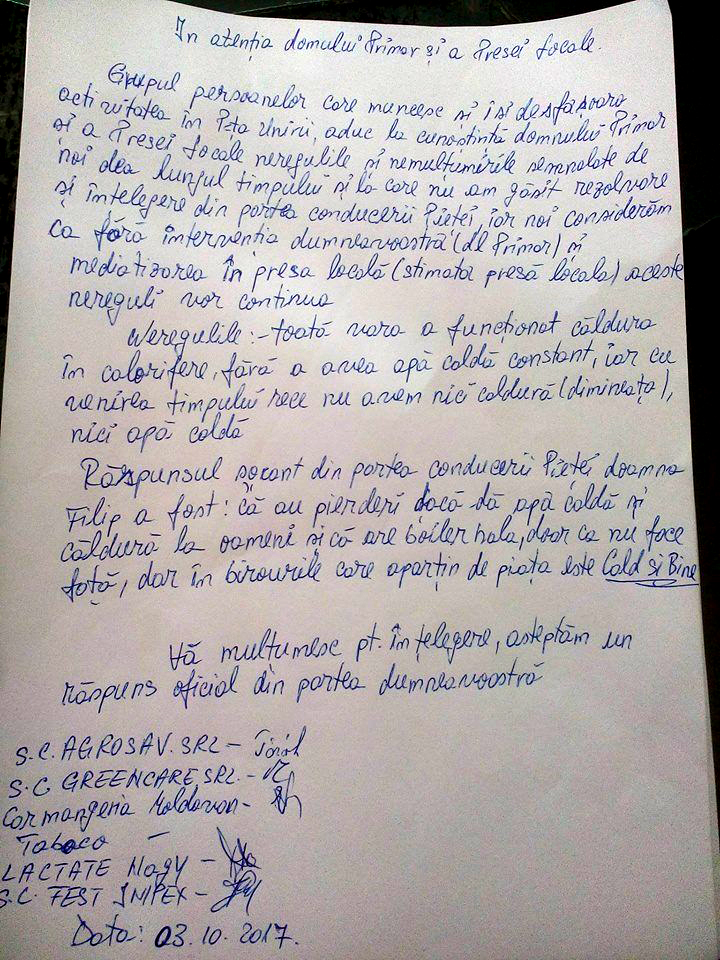 In atenția domului Primor și a Presei locale.
Grupul persoanelor care muncesc și isi desfășoară
activitatea în P-ta Unirii, aduc la cunoștintă domnului Primar
și a Presei locale neregulile și nemultumirile semnalate de
noi dea lungul timpului și la care nu am găsit rezolvare
și întelegere din partea conducerii Pieței, iar noi considerăm
Ca fără interventia dumneavoastră (dl Primar) și
mediatizarea în presa locală (stimata presă locala) aceste
nereguli vor continua
Neregulile: - toată vara a funcționat căldura
în calorifere, fără a avea apă caldă constant, iar cu
venirea timpului rece nu avem nici caldură (dimineața),
nici apă caldă
Răspunsul șocant din partea conducerii Pieței doamna
Filip a fost: că au pierderi dacă dă apă caldă și
căldură la oameni și că are boiler hala, doar ca nu face
față, dar în birourile care aparțin de piața este Cald si Bine
Vă multumesc pt. înțelegere, asteptăm un
răspuns oficial din partea dumneavoastră
S.C. AGROSAV. SRL -
S.C. GREENCARE SRL. -
Carmangeria Moldovan -
Tabaco -
LACTATE Nagy -
S.C. FEST INPEX -
Data: 03.10.2017.